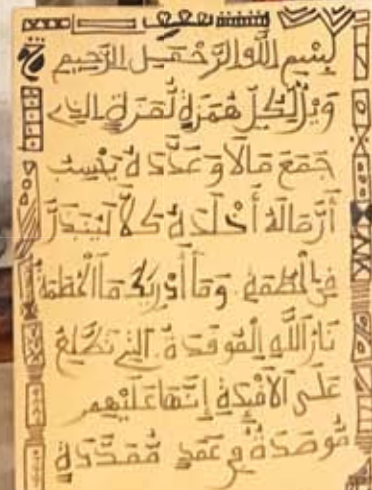 بِسْمِ اللَّهِ الرَّحْمَٰنِ الرَّحِيمِ
وَيْلٌ لِكُلِّ هُمَزَةٍ لُمَزَةٍ الذِي
جَمَعَ مَالًا وَعَدَّدَهُ يَحْسِبُ
أَنَّ مَالَهُ أَخْلَدَهُ كَلَّا لَيُنبَذَنَّ
فِي الْحُطَمَةِ وَمَا أَدْرِيكَ مَا الْحُطَمَةُ
نَارُ اللَّهِ الْمُوقَدَةُ التِي تَطَّلِعُ
عَلَى الْأَفْئِدَةِ إِنَّهَا عَلَيْهِم
مُوصَدَةٌ فِي عَمَدٍ مُمَدَّدَةٍ